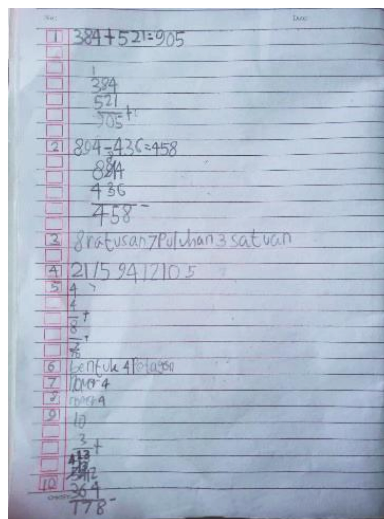 No:
Date:
1 384+521=905
1
384
521
905 +
2 894-436=458
894
436
458 -
3 8 ratusan 7 Puluhan 3 satuan
4
5 4
4
8 +
6 bentuk 4
7 nomor 4
8
9 10
3 +
13
10
364
178 -